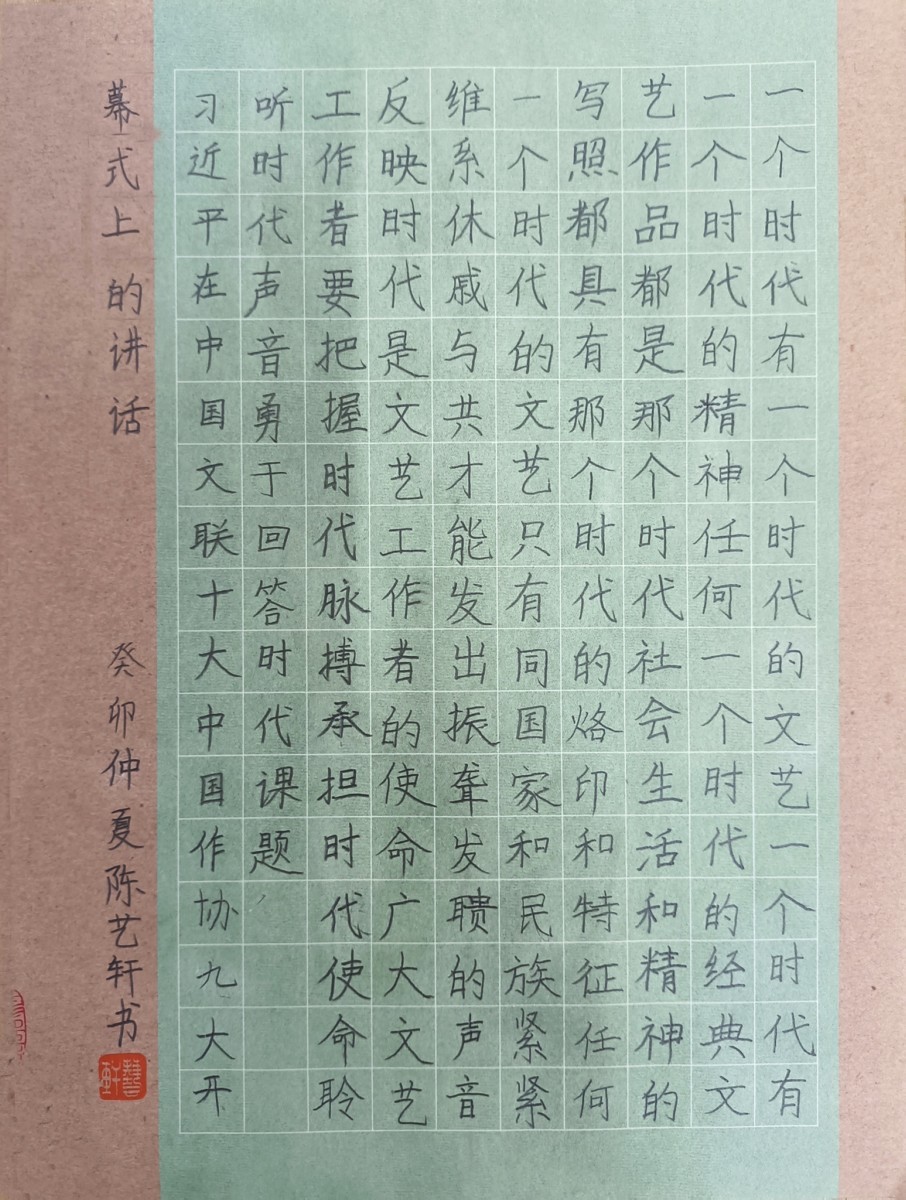 一个时代有一个时代的文艺一个时代有
一个时代的精神任何一个时代的经典文
艺作品都是那个时代社会生活和精神的
写照都具有那个时代的烙印和特征任何
一个时代的文艺只有同国家和民族紧紧
维系休戚与共才能发出振聋发聩的声音
反映时代是文艺工作者的使命广大文艺
工作者要把握时代脉搏承担时代使命聆
听时代声音勇于回答时代课题
习近平在中国文联十大中国作协九大开
幕式上的讲话 癸卯仲夏陈艺轩书